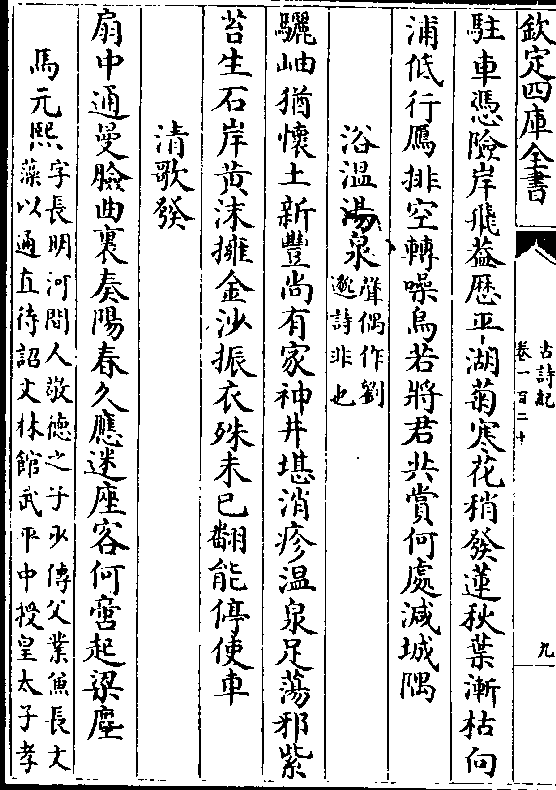 欽定四庫全書
古詩紀
卷一百二十
九
駐車憑險岸飛葢歴平湖菊寒花稍發蓮秋葉漸枯向
浦低行鴈排空轉噪烏若將君共賞何處減城隅
浴溫湯泉聲偶作劉
逖詩非也
驪岫猶懷土新豐尚有家神井堪消疹溫泉足蕩邪紫
苔生石岸黄沫擁金沙振衣殊未已翻能停使車
清歌發
扇中通曼臉曲裏奏陽春久應迷座客何啻起梁塵
馬元熙字長明河間人敬德之子少傳父業兼長文
藻以通直待詔文林館武平中授皇太子孝